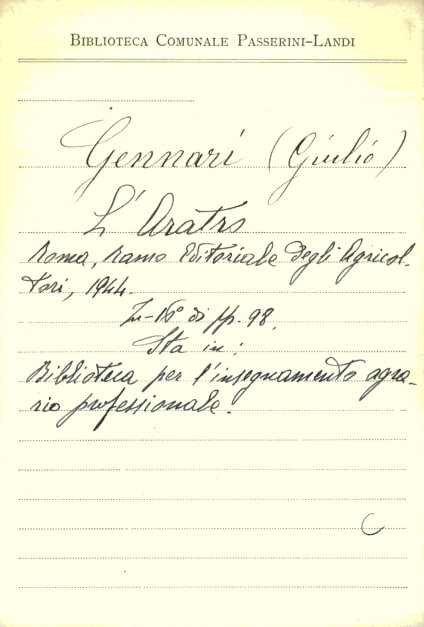 BIBLIOTECA COMUNALE PASSERINI-LANDI
Gennari (Giulio)
L'Aratro
Roma, Ramo Editoriale degli Agricol-
tori, 1944.
In-16° di pp. 98.
Sta in:
Biblioteca per l'insegnamento agra-
rio professionale.
C